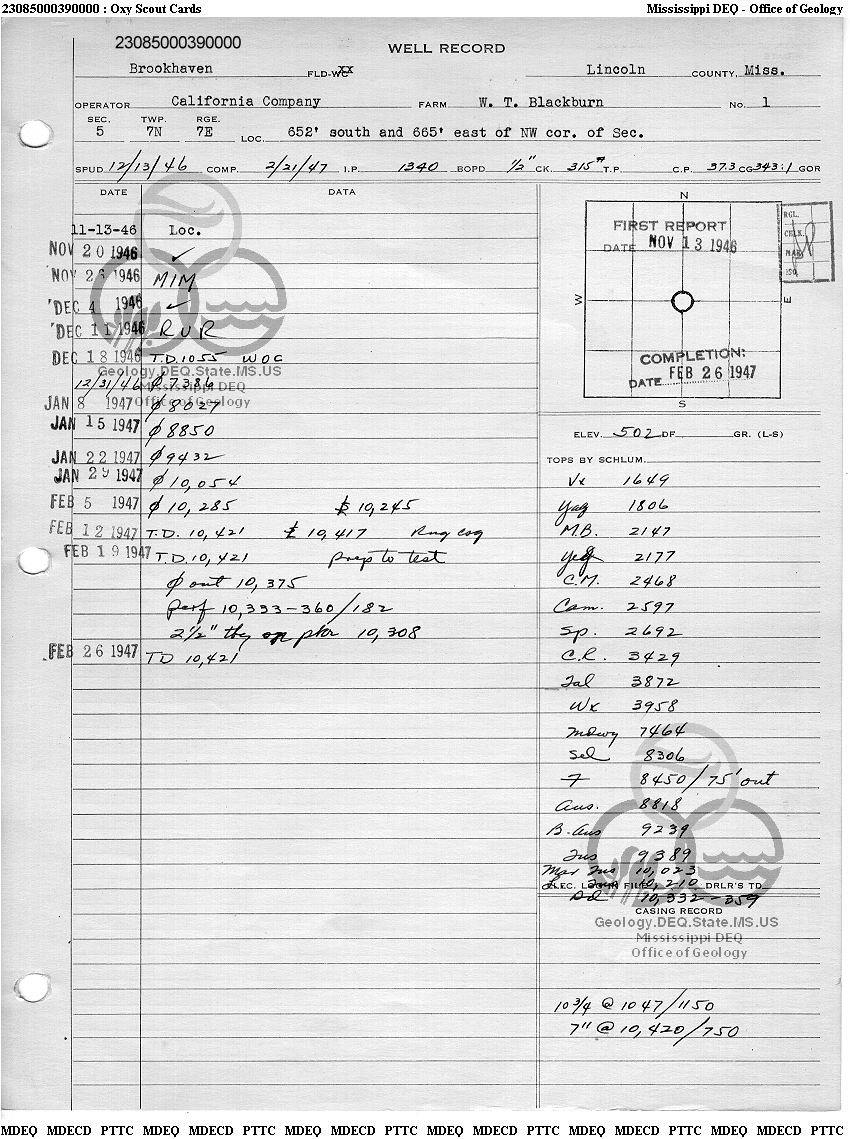 23085000390000 : Oxy Scout Cards Mississippi DEQ - Office of Geology
23085000390000
WELL RECORD
Brookhaven FLD-WC xx Lincoln COUNTY, Miss.
OPERATOR California Company FARM W. T. Blackburn No. 1
SEC. TWP. RGE.
5 7N 7E LOC. 652' south and 665' east of NW cor. of Sec.
SPUD 12/13/46 COMP. 2/21/47 I.P. 1340 BOPD 1/2" CK. 315# T.P. C.P. 37.3 CG 343:1 GOR
DATE DATA
11-13-46 Loc.
NOV 20 1946 ✓
NOV 26 1946 MIM
DEC 4 1946 ✓
DEC 11 1946 RUR
DEC 18 1946 T.D. 1055 WOC
12/31/46 ϕ 7386
JAN 8 1947 ϕ 8027
JAN 15 1947 ϕ 8850
JAN 22 1947 ϕ 9432
JAN 29 1947 ϕ 10,054
FEB 5 1947 ϕ 10,285 10,245
FEB 12 1947 T.D. 10,421 10,417 Rng csg
FEB 19 1947 T.D. 10,421 prep to test
ϕ out 10,375
perf 10,333-360/182
2½" tbg on pkr 10,308
FEB 26 1947 TD 10,421
N
W
E
S
FIRST REPORT
DATE NOV 13 1946
COMPLETION:
DATE FEB 26 1947
RGL.
CHLK.
MAP
ISO.
ELEV. 502 DF GR. (L-S)
TOPS BY SCHLUM.
Vx 1649
Yaz 1806
M.B. 2147
Yeg 2177
C.M. 2468
Cam. 2597
Sp. 2692
C.R. 3429
Tal 3872
Wx 3958
Mdwy 7464
Sel 8306
F 8450/75' out
Aus. 8818
B. Aus 9239
Tus 9389
Mar Tus 10,023
ELEC. LOG FILE 10,210 DRLR'S TD
10,332-359
CASING RECORD
10 3/4 @ 1047/1150
7" @ 10,420/750
Geology.DEQ.State.MS.US
Mississippi DEQ
Office of Geology
Geology.DEQ.State.MS.US
Mississippi DEQ
Office of Geology
MDEQ MDECD PTTC MDEQ MDECD PTTC MDEQ MDECD PTTC MDEQ MDECD PTTC MDEQ MDECD PTTC MDEQ MDECD PTTC